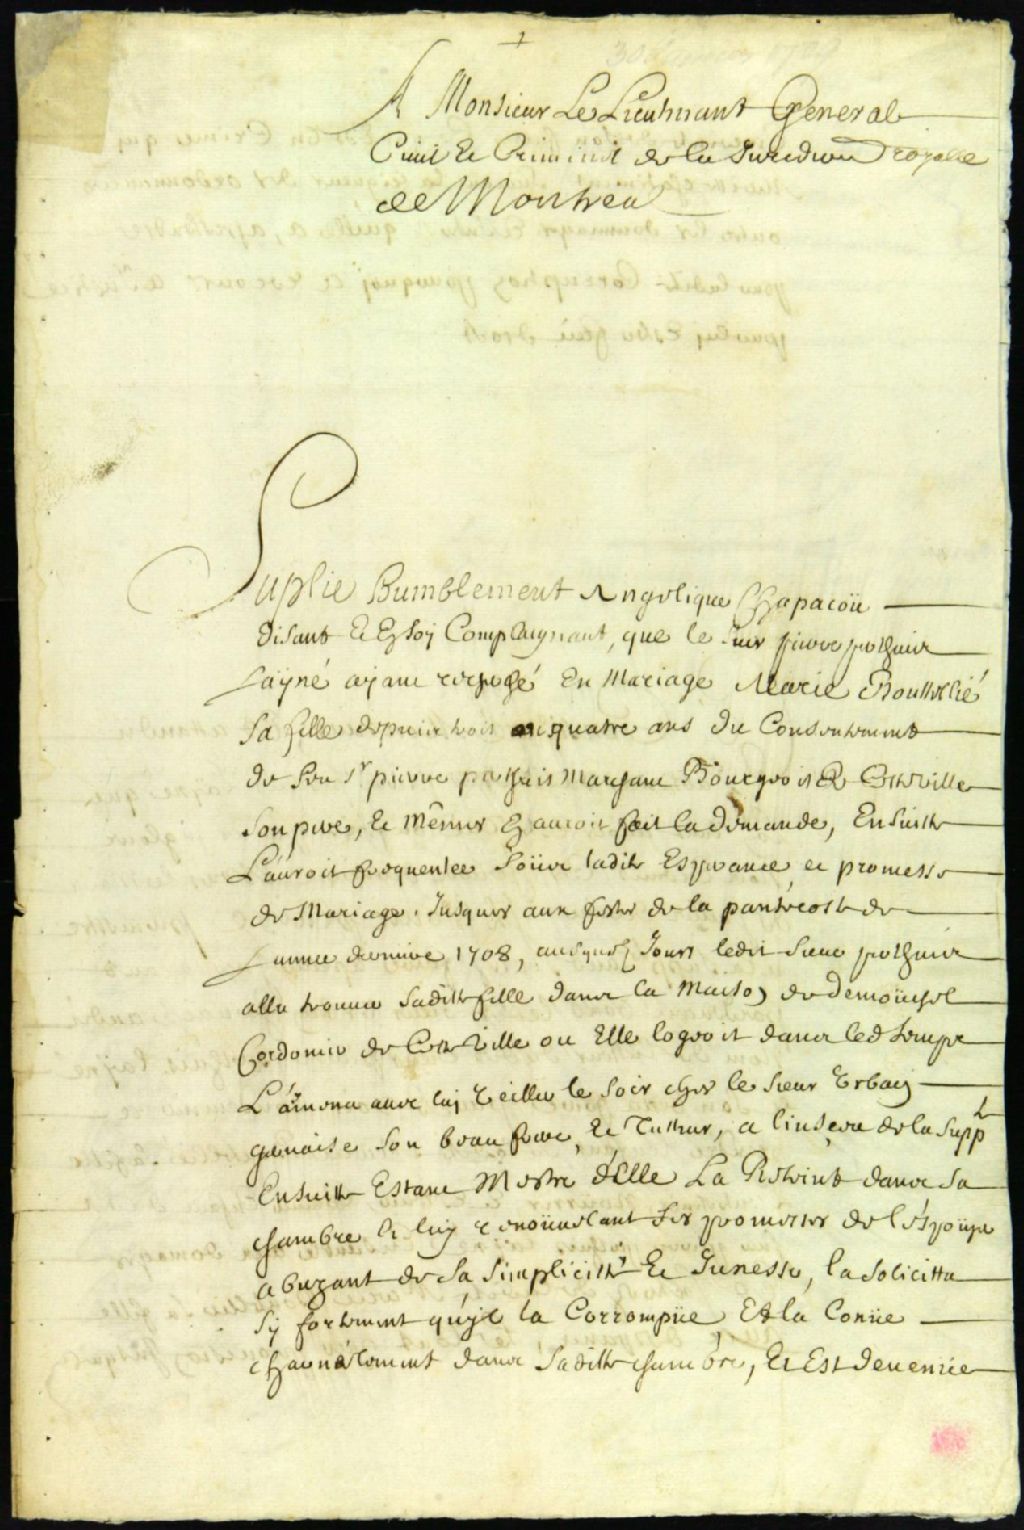 A Monsieur Le Lieutenant General
Civil Et Criminel de la Juridiction royalle
de Montreal
Suplie Humblement Angelique Chapacoü
disant Et Exposant Complaignant, que le sieur pierre pothier
L'ayné ayant recherché En Mariage Marie Boutteillé
Sa fille depuis trois ou quatre ans du Consentement
de feu Sr pierre pothier Marchant Bourgeois De Cette ville
Son pere, Et Mêmes En auroit fait la demande, Ensuitte
L'auroit frequentee Soüs ladite Esperance et promesse
de Mariage, Jusques aux festes de la pantecoste de
L'annee derniere 1708, ausquels Jours ledit Sieur pothier
alla trouver Saditte fille dans la Maison de demoüchel
Cordonier de Cette Ville ou Elle logeoit dans led temps
L'amena avec luy Veiller le Soir chez le Sieur Urbain
gervaise Son beau frere, Et Tutteur, a linsceu de la Suppte
Ensuitte Estant Mestre d'Elle La Retint dans Sa
chambre Et luy renoüvelant Ses promesses de l'Espouser
abuzant de Sa Simplicitté Et Junesse, la Solicitta
Sy fortement qu'yl la Corrompüe Et la Conüe
charnelement dans Saditte chambre, Et Est devenüe